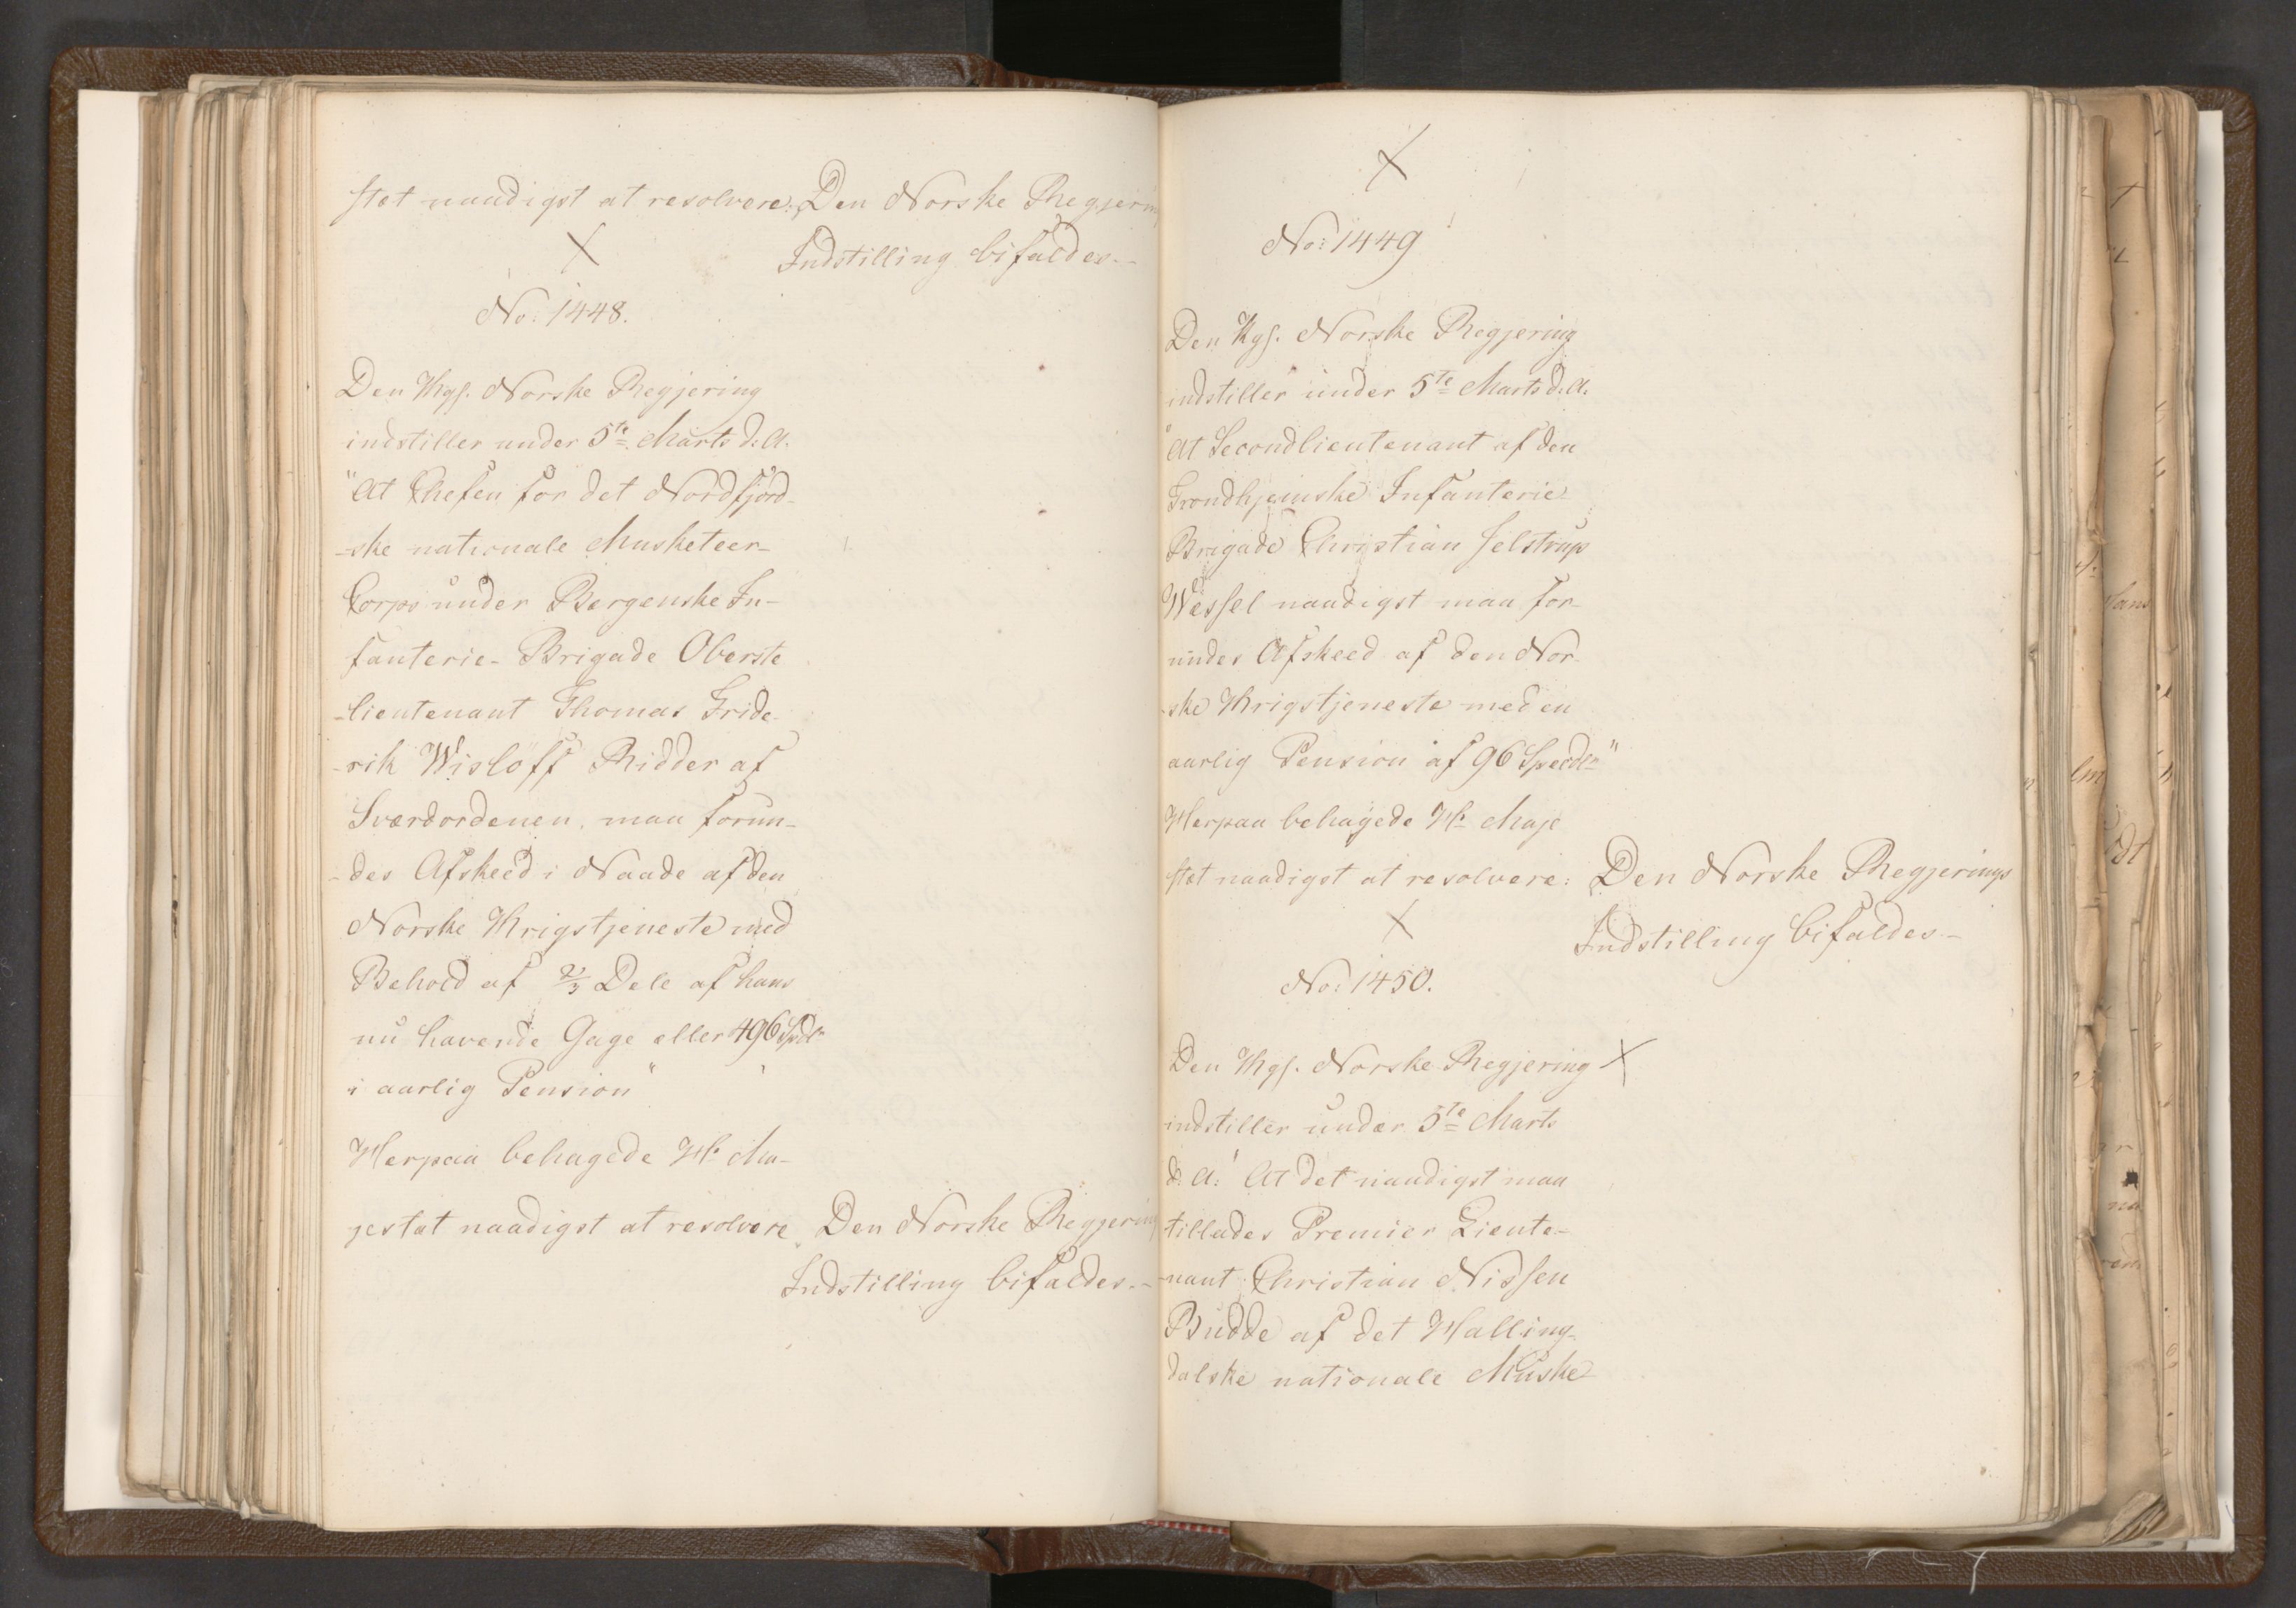 stæt naadigst at resolvere: Den Norske Regjerin
Indstilling bifaldes.-
No: 1448.
Den Kgs. Norske Regjering
indstiller under 5te Marts d: A.
"At Chefen for det Nordfjord-
-ske nationale Musketeer-
Corps under Bergenske In-
fanterie- Brigade Oberste
-lieutenant Thomas Fride-
-rik Wisløff Ridder af
Sværdordenen, maa forun-
-des Afskeed i Naade af den
Norske Krigstjeneste med
Behold af 2/3 Dele af hans
nu havende Gage eller 496 Spdlr
i aarlig Pension"
Herpaa behagede Hs Ma-
jestæt naadigst at resolvere Den Norske Regjering
Indstilling bifaldes.-
No: 1449
Den Kgs. Norske Regjering
indstiller under 5te Marts d: A.
"At Secondlieutenant af den
Trondhjemske Infanterie
Brigade Christian Jelstrup
Wessel naadigst maa for-
undes Afskeed af den Nor-
-ske Krigstjeneste med en
aarlig Pension af 96 Specdlr"
Herpaa behagede Hs Maje
stæt naadigst at resolvere: Den Norske Regjerings
Indstilling bifaldes-
No: 1450.
Den Kgs. Norske Regjering
indstiller under 5te Marts
d: A: At det naadigst maa
tillades Premier Lieute-
-nant Christian Nissen
Budde af det Halling-
dalske nationale Muske